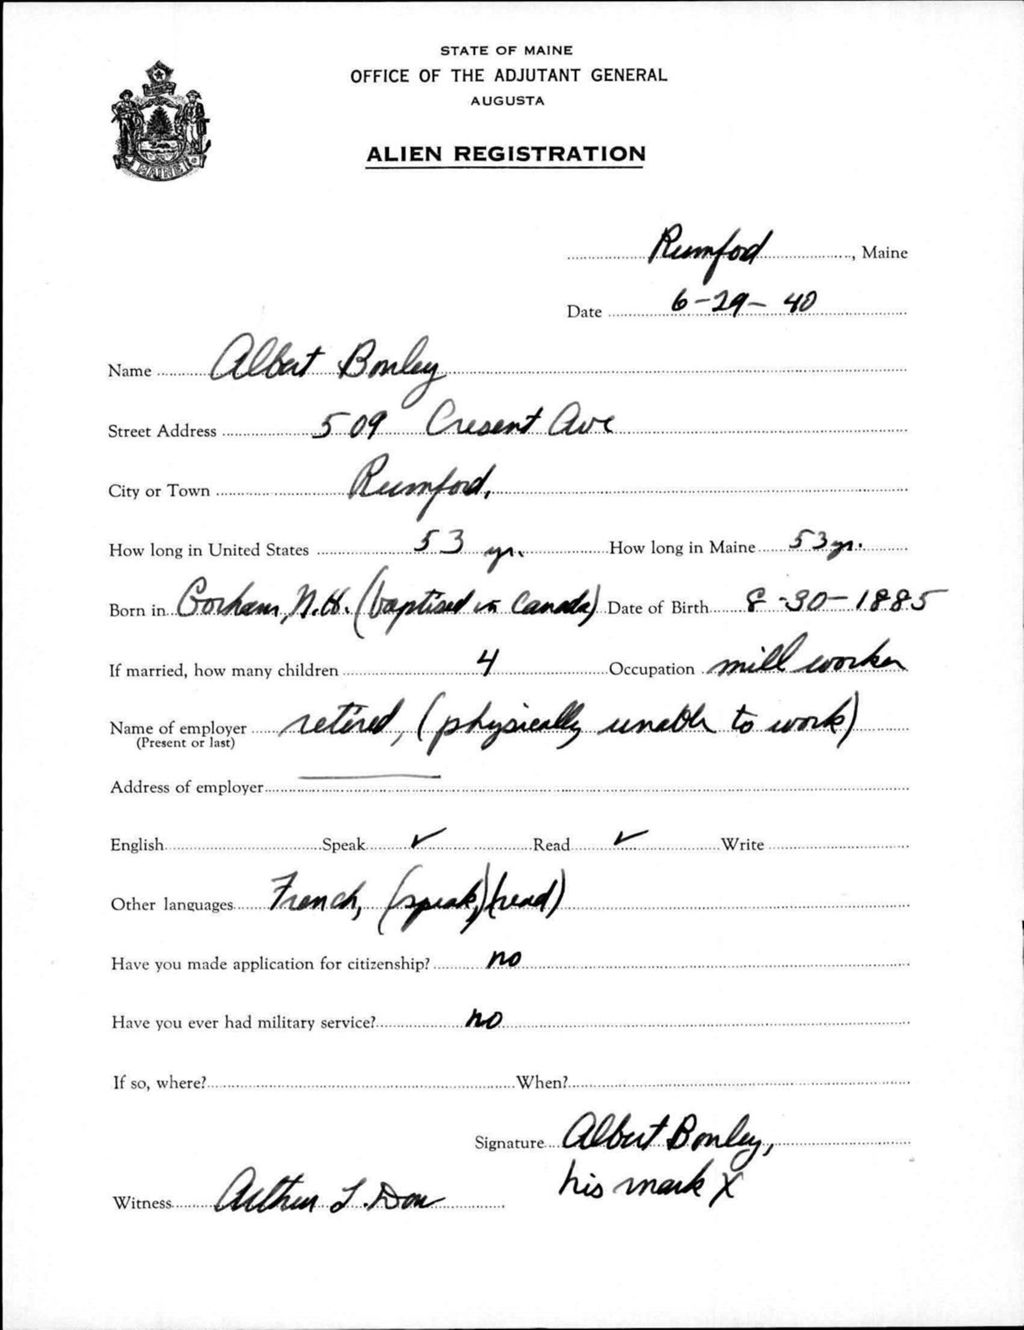 STATE OF MAINE
OFFICE OF THE ADJUTANT GENERAL
AUGUSTA
ALIEN REGISTRATION
MAINE
Rumford, Maine
Date 6-29-40
Name Albert Bonley
Street Address 509 Cresent Ave
City or Town Rumford,
How long in United States 53 yr. How long in Maine 53 yr.
Born in Gorham, N.H. (baptised in Canada) Date of Birth 8-30-1885
If married, how many children 4 Occupation mill worker
Name of employer retired, (physically unable to work)
(Present or last)
Address of employer
English Speak ✓ Read ✓ Write
Other languages French, (speak,) (read)
Have you made application for citizenship? no
Have you ever had military service? no
If so, where? When?
Signature Albert Bonley,
his mark X
Witness Arthur L. Dow